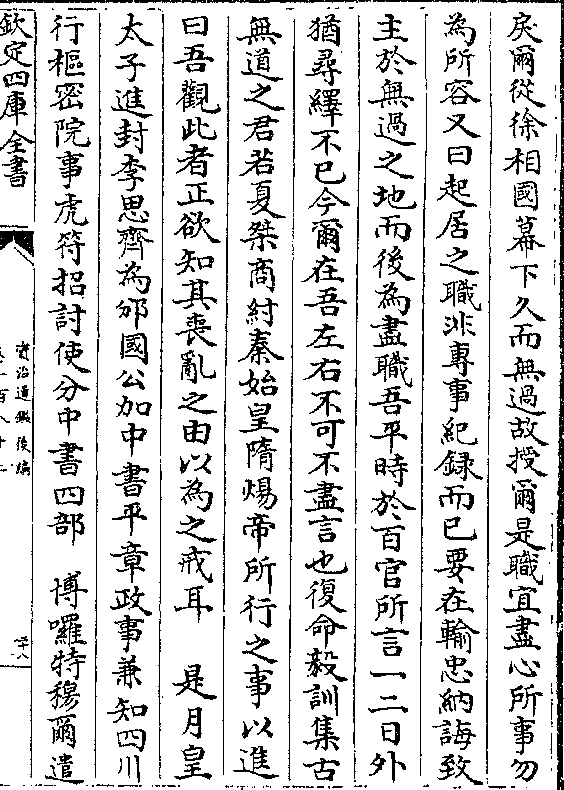 戾爾從徐相國幕下久而無過故授爾是職宜盡心所事勿
為所容又曰起居之職非專事紀録而已要在輸忠納誨致
主於無過之地而後為盡職吾平時於百官所言一二日外
猶尋繹不已今爾在吾左右不可不盡言也復命毅訓集古
無道之君若夏桀商紂秦始皇隋煬帝所行之事以進
曰吾觀此者正欲知其喪亂之由以為之戒耳　是月皇
太子進封李思齊為邠國公加中書平章政事兼知四川
行樞密院事虎符招討使分中書四部　博囉特穆爾遣
欽定四庫全書
資治通鑑後編